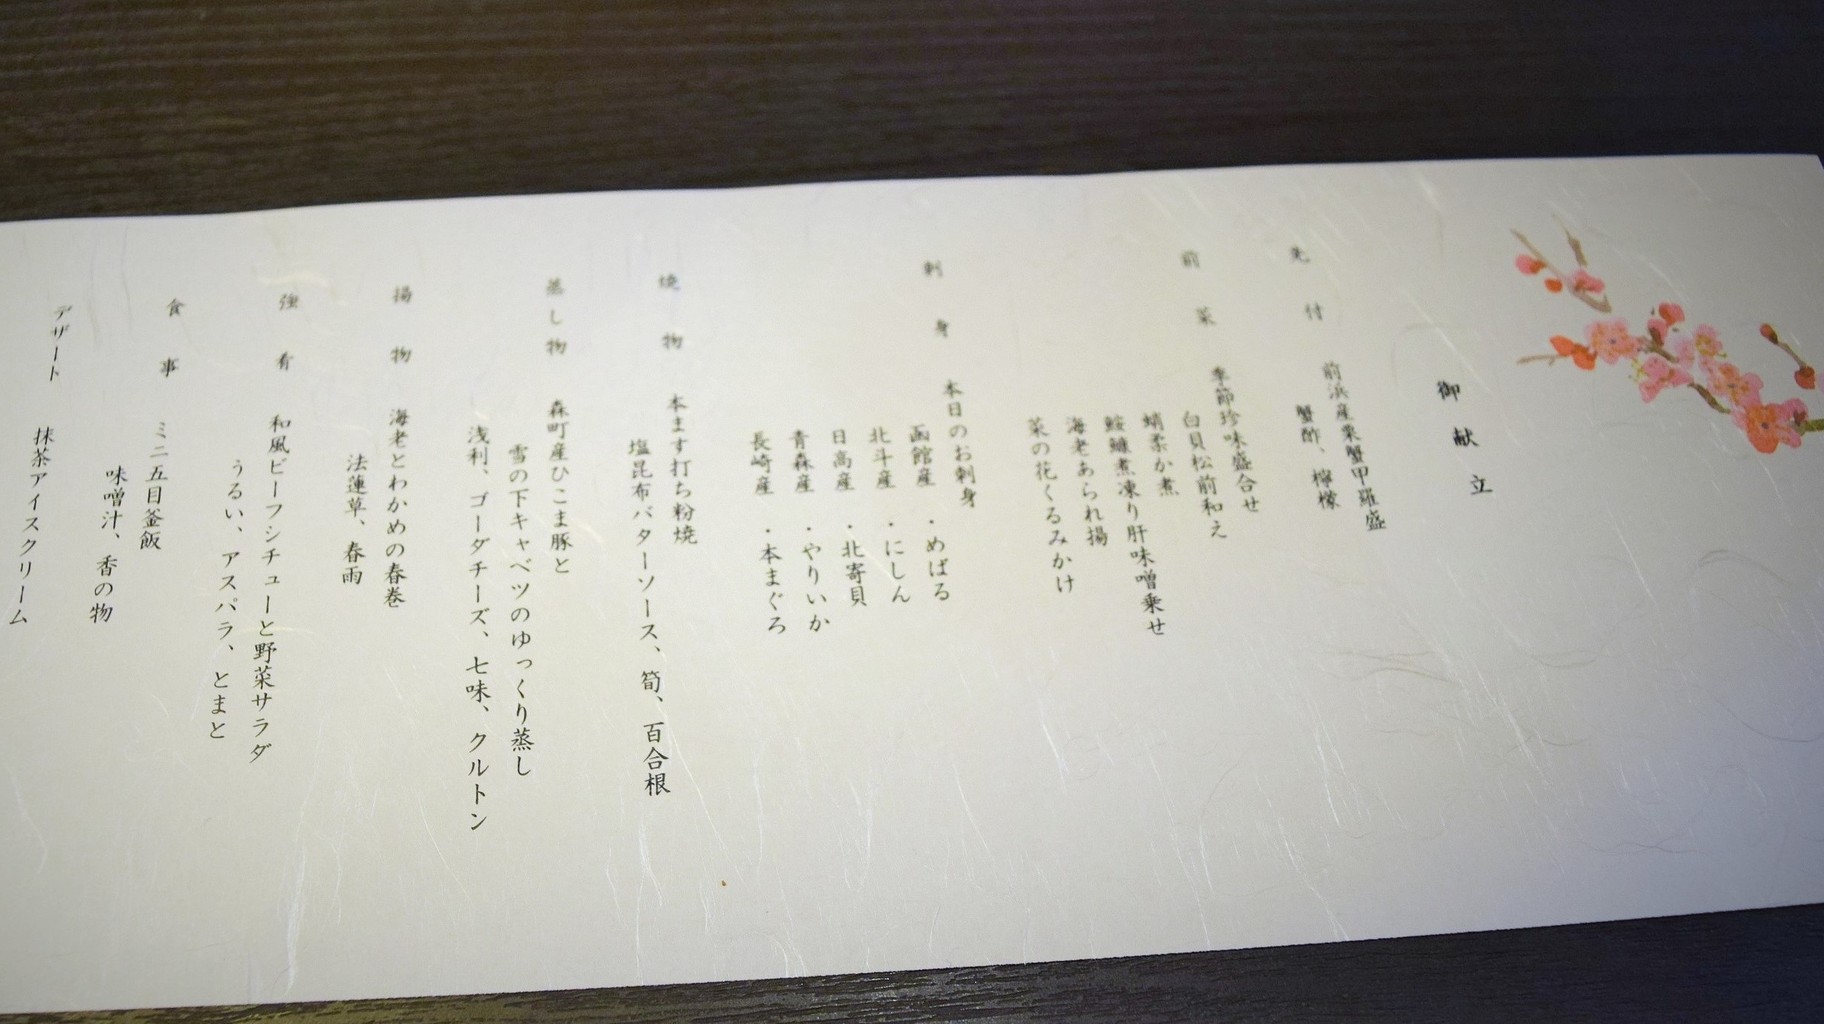 御献立
先付 前浜産栗蟹甲羅盛
蟹酢、檸檬
前菜 季節珍味盛合せ
白貝松前和え
蛸柔か煮
鮟鱇煮凍り肝味噌乗せ
海老あられ揚
菜の花くるみかけ
刺身 本日のお刺身
函館産 ・めばる
北斗産 ・にしん
日高産 ・北寄貝
青森産 ・やりいか
長崎産 ・本まぐろ
焼物 本ます打ち粉焼
塩昆布バターソース、筍、百合根
蒸し物 森町産ひこま豚と
雪の下キャベツのゆっくり蒸し
浅利、ゴーダチーズ、七味、クルトン
揚物 海老とわかめの春巻
法蓮草、春雨
強肴 和風ビーフシチューと野菜サラダ
うるい、アスパラ、とまと
食事 ミニ五目釜飯
味噌汁、香の物
デザート 抹茶アイスクリーム